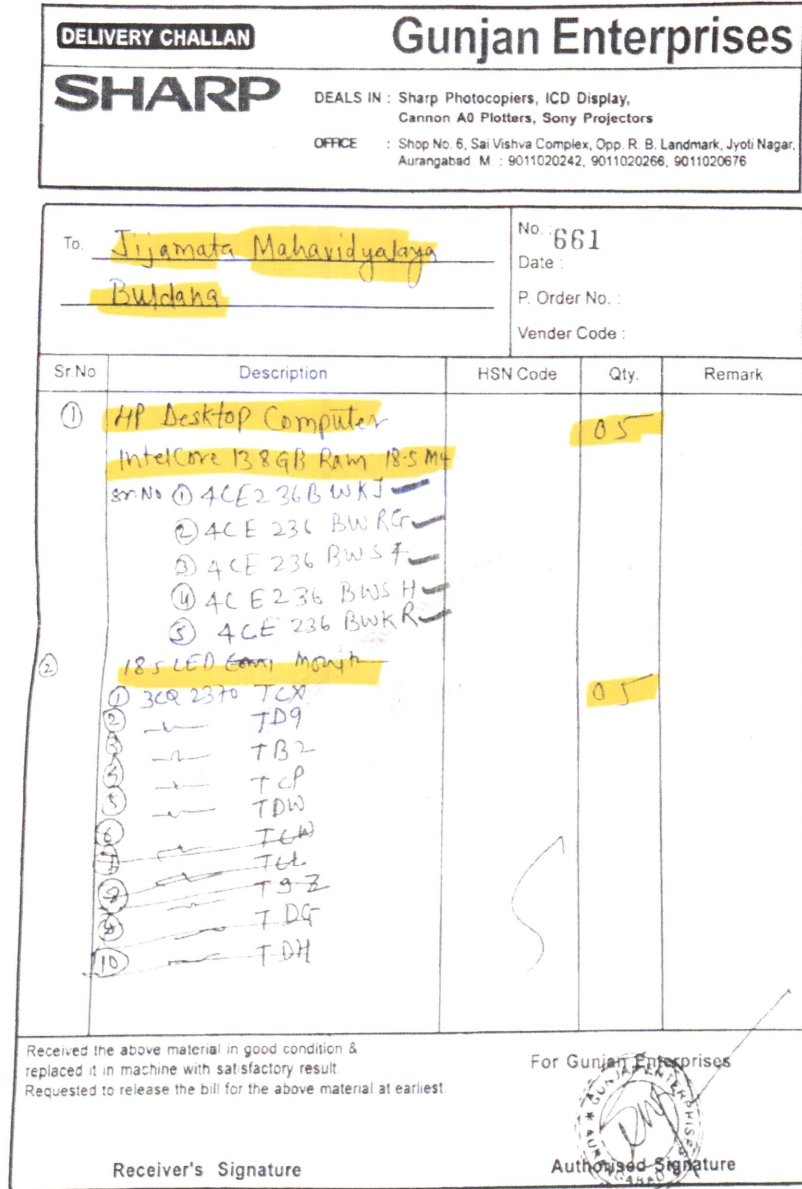 DELIVERY CHALLAN
Gunjan Enterprises
SHARP
DEALS IN : Sharp Photocopiers, ICD Display,
Cannon A0 Plotters, Sony Projectors
OFFICE : Shop No. 6, Sai Vishva Complex, Opp. R. B. Landmark, Jyoti Nagar,
Aurangabad M : 9011020242, 9011020266, 9011020676
To. Jijamata Mahavidyalaya
Buldana
No. : 661
Date :
P. Order No. :
Vender Code :
Sr.No Description HSN Code Qty. Remark
① HP Desktop Computer 05
Intel Core I3 8GB Ram 18.5
Sr.No ① 4CE236BWKJ
② 4CE 236 BWRG
③ 4CE 236 BWSF
④ 4CE236 BWSH
⑤ 4CE 236 BWKR
② 18.5 LED Monitr 05
① 3CQ 2370 TCX
② TD9
③ TB2
④ TCP
⑤ TDW
⑥ TCW
⑦
⑧ T9Z
⑨ TDG
⑩ TDH
Received the above material in good condition &
replaced it in machine with satisfactory result.
Requested to release the bill for the above material at earliest.
For Gunjan Enterprises
GUNJAN ENTERPRISES * AURANGABAD *
Receiver's Signature
Authorised Signature